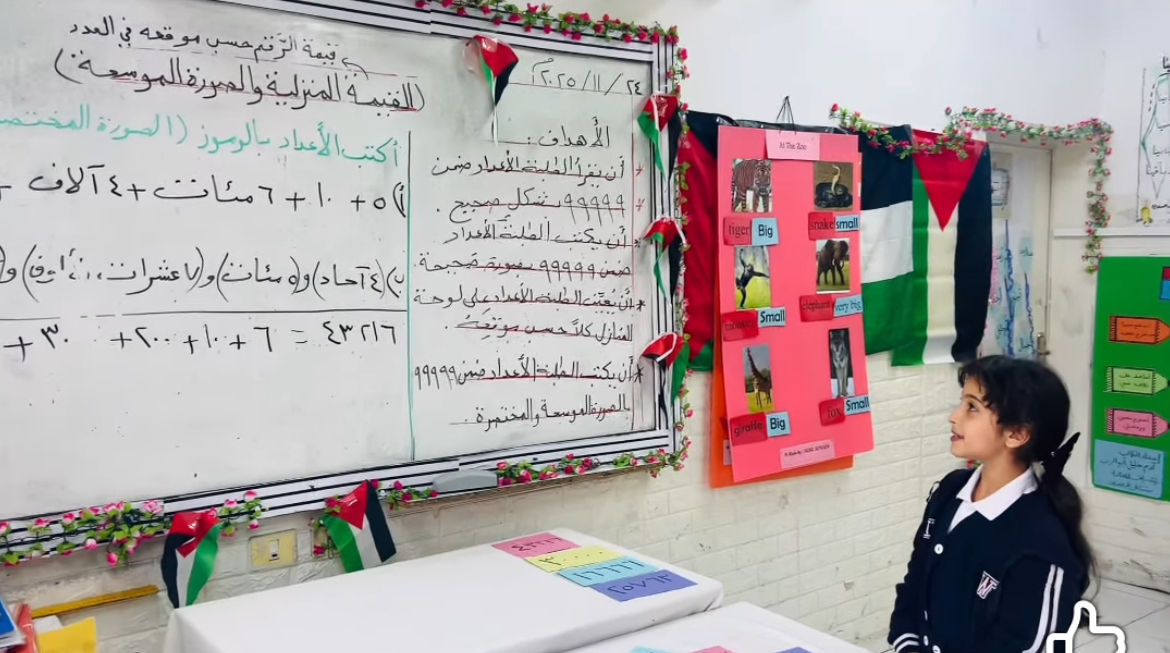 قيمة الرّقم حسب موقعه في العدد
(القيمة المنزلية والصورة الموسعة)
أكتب الأعداد بالرموز (الصورة المختصرة
أ) ٥ + ١٠ + ٦ مئات + ٤ آلاف +
ب) (٤ آحاد) و (٥ مئات) و (٧ عشرات)
٤٣٢١٦ = ٦ + ١٠ + ٢٠٠ + ٣٠
٢٠٢٥/١١/٢٤
الأهداف:
* أن يقرأ الطلبة الأعداد ضمن
٩٩٩٩٩ بشكل صحيح.
* أن يكتب الطلبة الأعداد
ضمن ٩٩٩٩٩ بصورة صحيحة.
* أن يُعيّن الطلبة الأعداد على لوحة
المنازل كلاً حسب موقعه
* أن يكتب الطلبة الأعداد ضمن ٩٩٩٩٩
بالصورة الموسعة والمختصرة.
At The Zoo
tiger Big
snake small
Small
elephant very big
giraffe Big
fox Small
٤٣٢١٦
٣٠٠٠٠